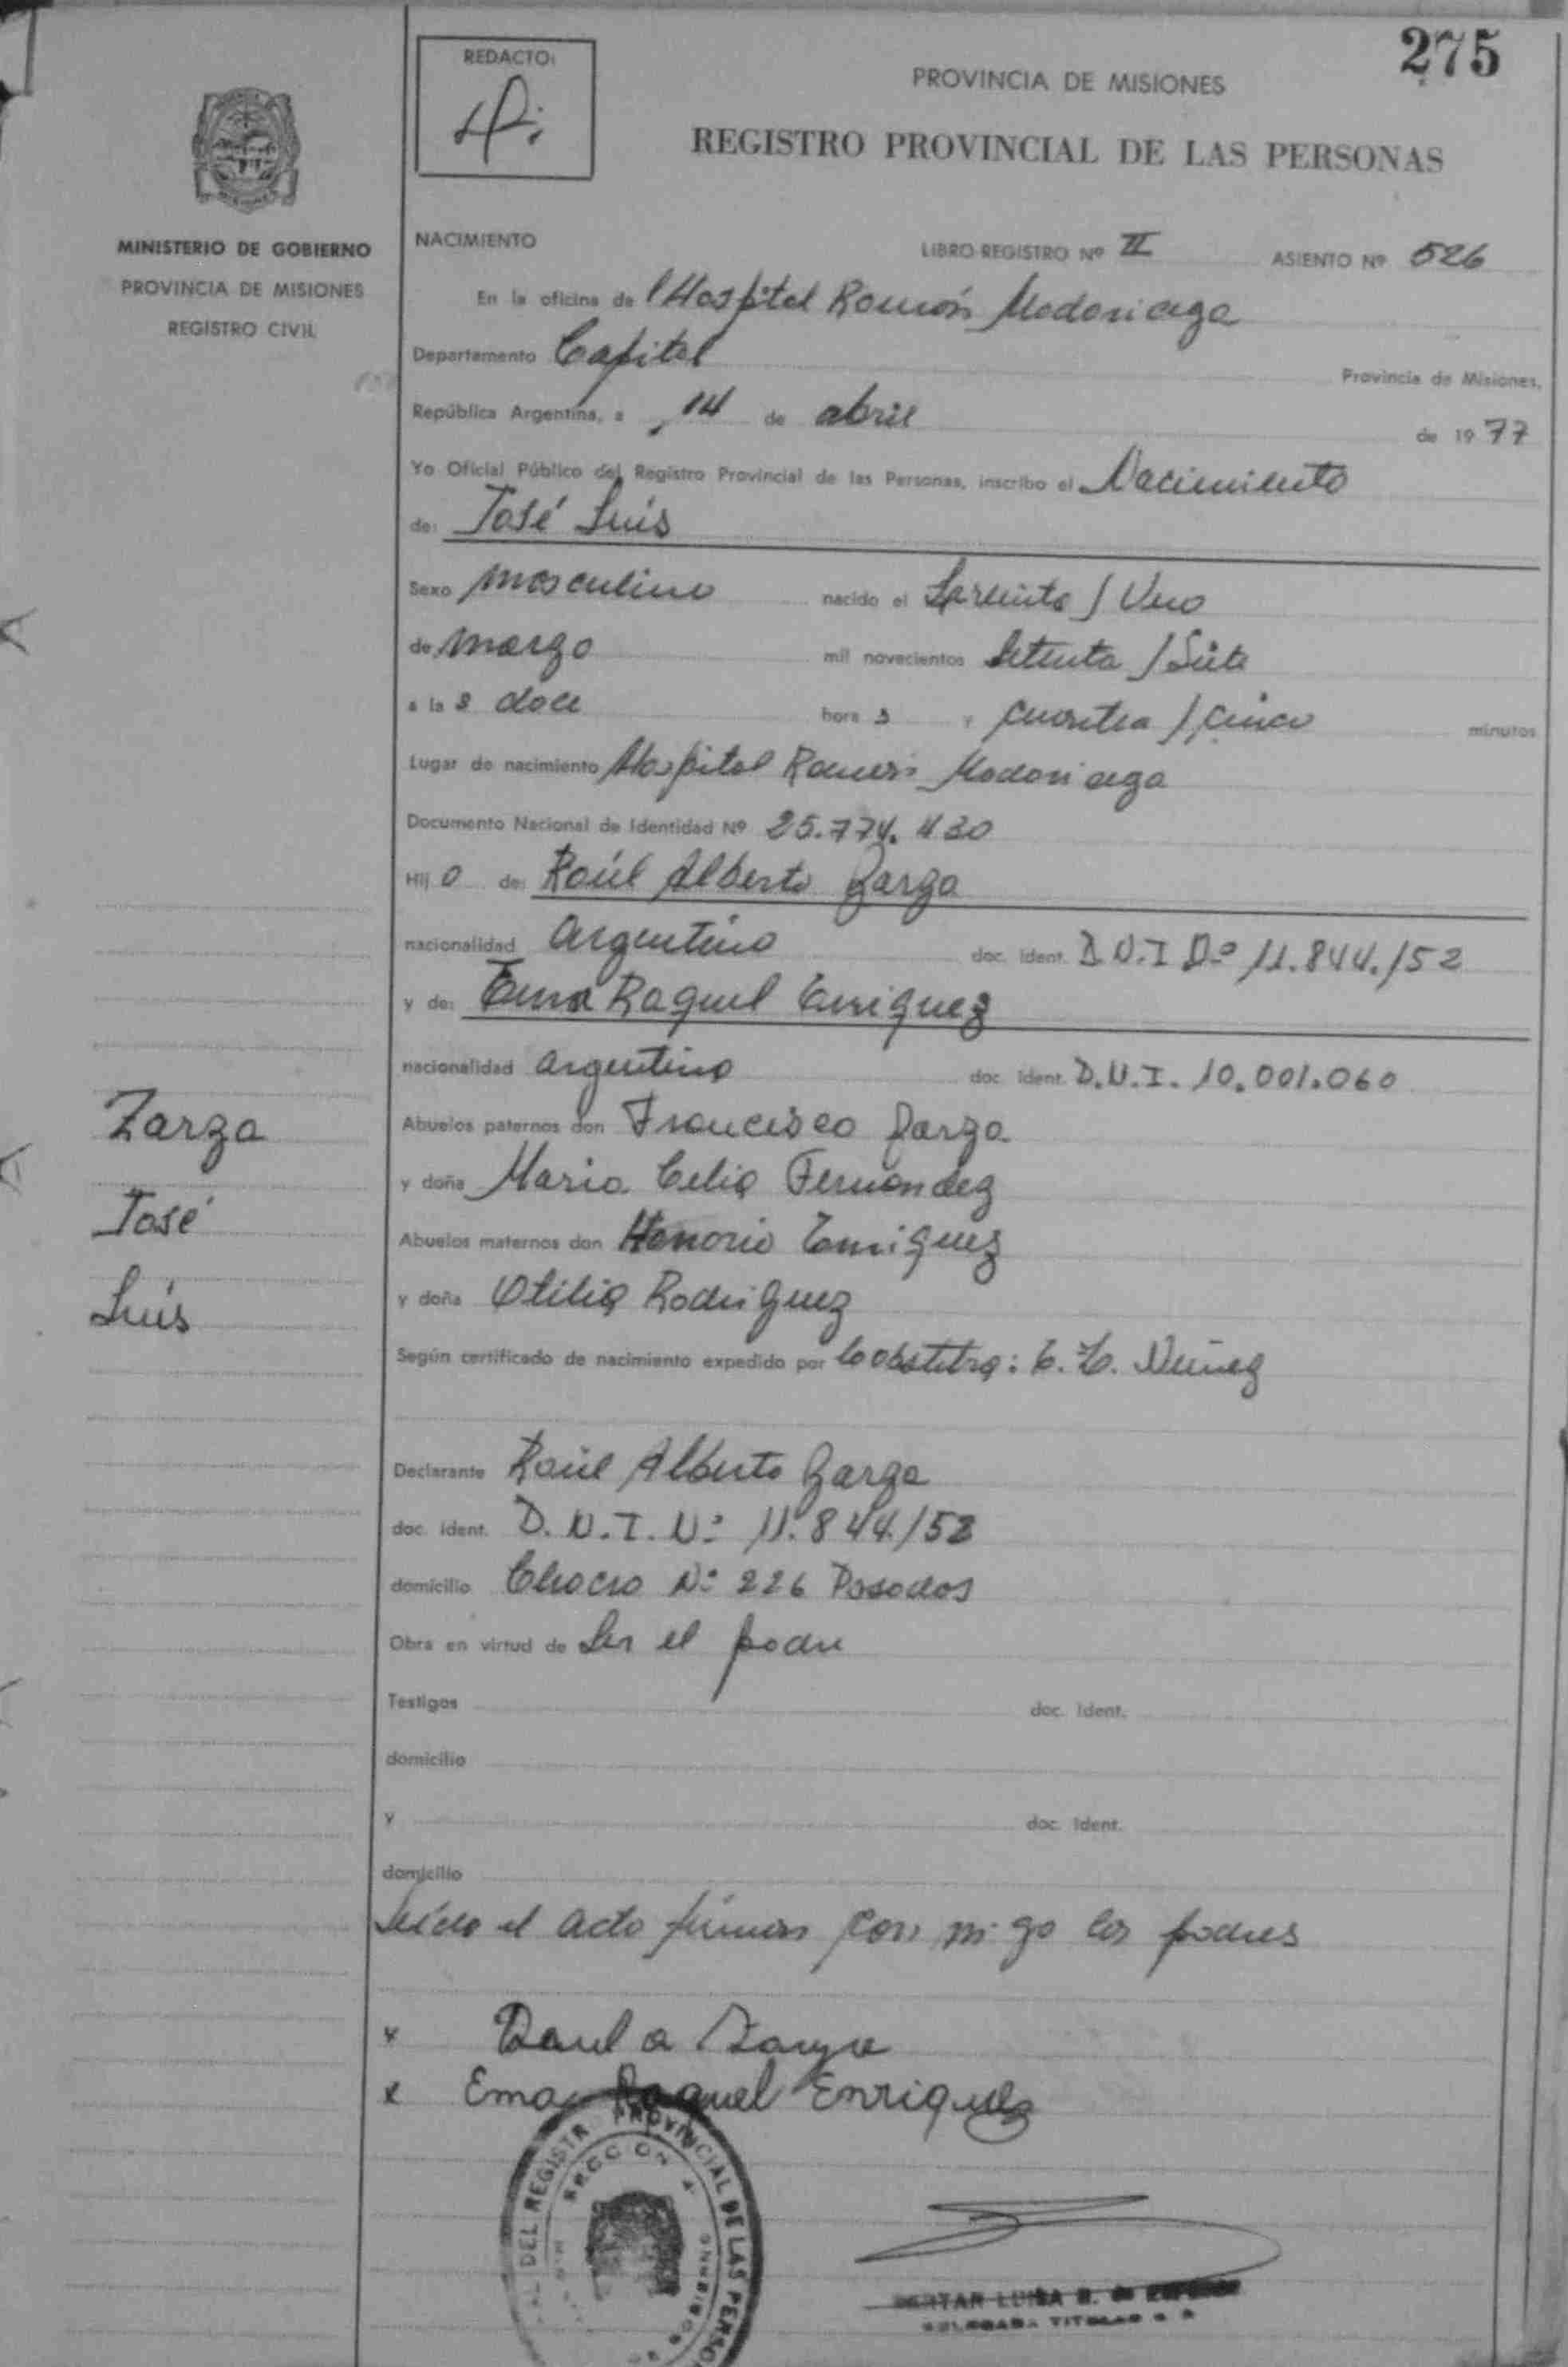 275
REDACTO:
PROVINCIA DE MISIONES
REGISTRO PROVINCIAL DE LAS PERSONAS
MINISTERIO DE GOBIERNO
PROVINCIA DE MISIONES
REGISTRO CIVIL
NACIMIENTO LIBRO REGISTRO Nº II ASIENTO Nº 526
En la oficina de Hospital Ramón Madariaga
Departamento Capital Provincia de Misiones,
República Argentina, a 14 de abril de 1977
Yo Oficial Público del Registro Provincial de las Personas, inscribo el Nacimiento
de: José Luis
Sexo masculino nacido el treinta / Uno
de marzo mil novecientos Setenta / Siete
a la s doce hora s y cuarenta / cinco minutos
Lugar de nacimiento Hospital Ramón Madariaga
Documento Nacional de Identidad Nº 25.774.430
Hij o de: Raúl Alberto Zarza
nacionalidad Argentino doc. ident. D.N.I Nº 11.844.152
y de: Ema Raquel Enriquez
nacionalidad argentina doc. ident. D.N.I. 10.001.060
Zarza
José
Luis
Abuelos paternos don Francisco Zarza
y doña Maria Celia Fernandez
Abuelos maternos don Honorio Enriquez
y doña Otilia Rodriguez
Según certificado de nacimiento expedido por la obstetra: Nuñez
Declarante Raúl Alberto Zarza
doc. ident. D.N.I. Nº 11.844.152
domicilio Chaco Nº 226 Posadas
Obra en virtud de Ser el padre
Testigos doc. ident.
domicilio
y doc. ident.
domicilio
Leída el acta firman con migo los padres
x Raul a Zarza
x Ema Raquel Enriquez
DEL REGISTR PROVINCIAL DE LAS PERSO